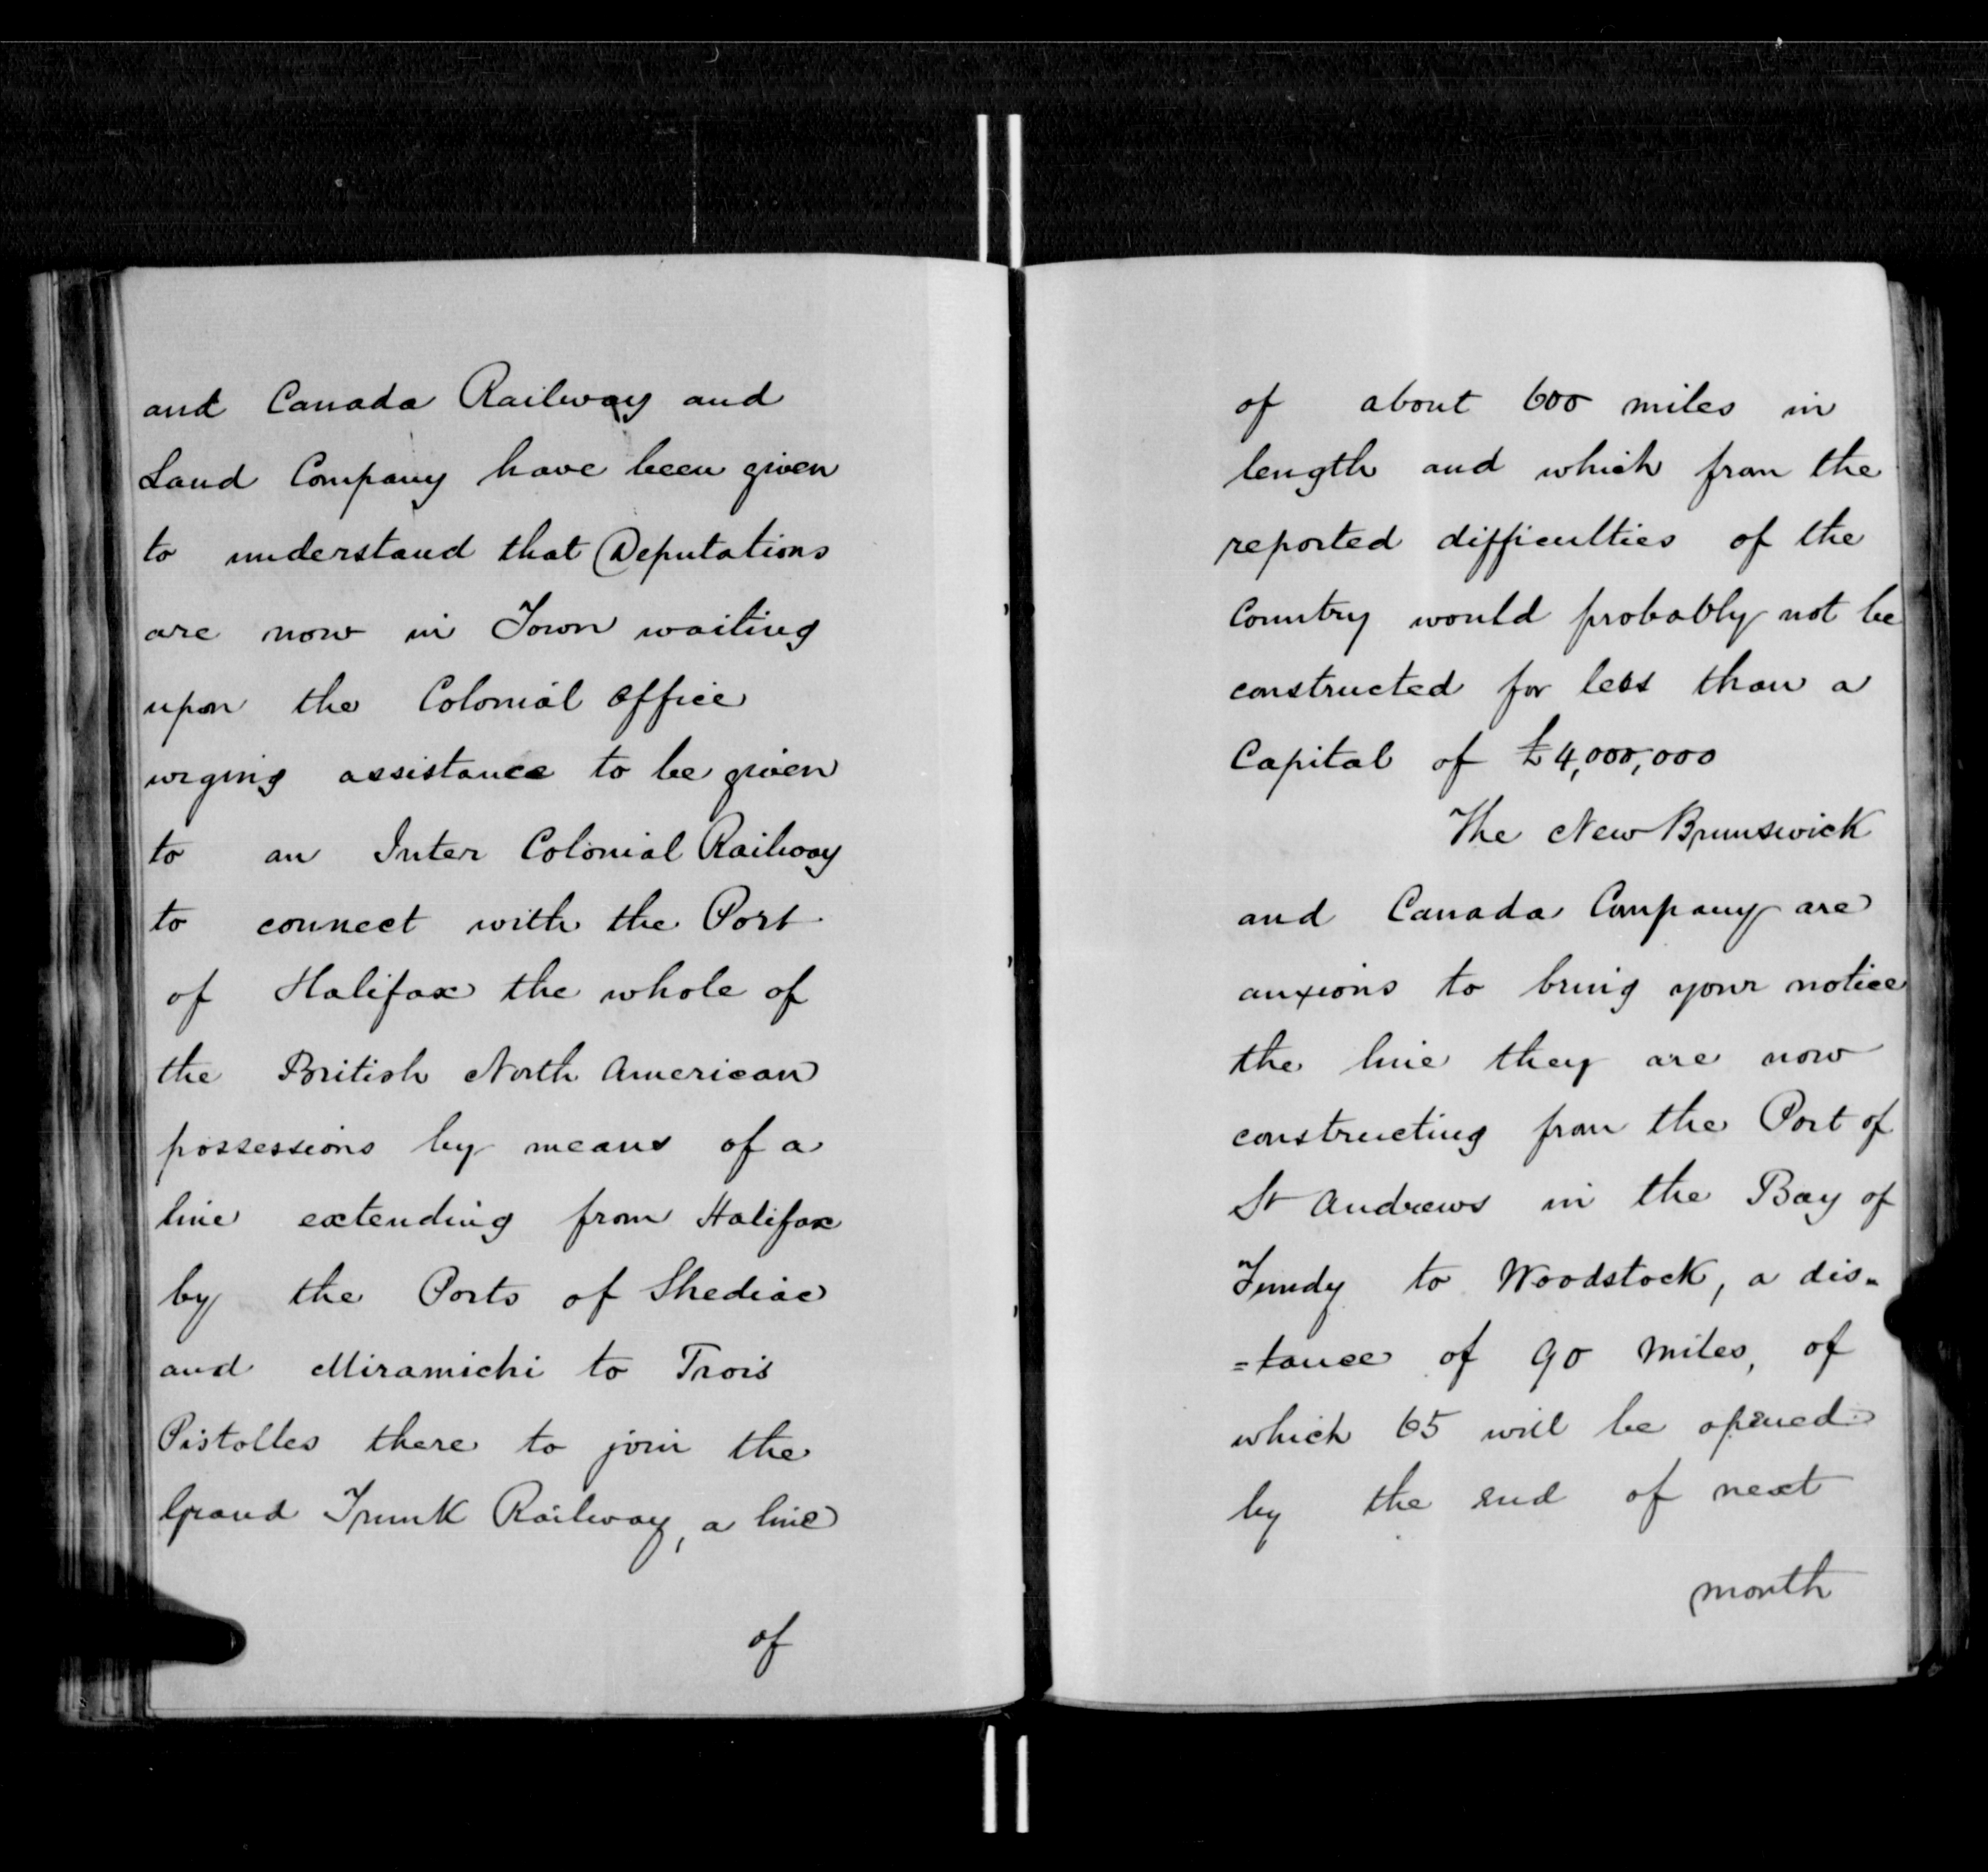 and Canada Railway and
Land Company have been given
to understand that Deputations
are now in Town waiting
upon the Colonial Office
urging assistance to be given
to an Inter Colonial Railway
to connect with the Port
of Halifax the whole of
the British North American
possessions by means of a
line extending from Halifax
by the Ports of Shediac
and Miramichi to Trois
Pistolles there to join the
Grand Trunk Railway, a line
of
of about 600 miles in
length and which from the
reported difficulties of the
Country would probably not be
constructed for less than a
Capital of £4,000,000
The New Brunswick
and Canada Company are
anxious to bring your notice
the line they are now
constructing from the Port of
St Andrews in the Bay of
Fundy to Woodstock, a dis=
=tance of 90 miles, of
which 65 will be opened
by the end of next
month